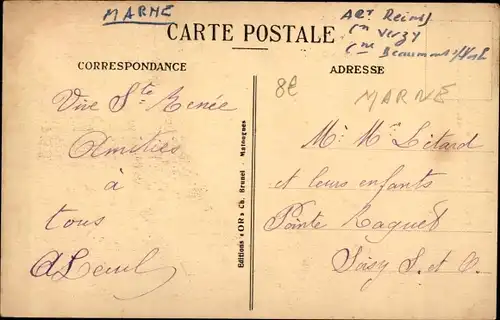 MARNE
CARTE POSTALE
Art Reims
Cn Verzy
Cne Beaumont s/Vesle
CORRESPONDANCE
ADRESSE
8€
MARNE
Vive Ste Renée
Amitiés
à
tous
Editions «OR» Ch. Brunet - Matougues
Mr Me Litard
et leurs enfants
Pointe Raquet
Soisy S. et O.